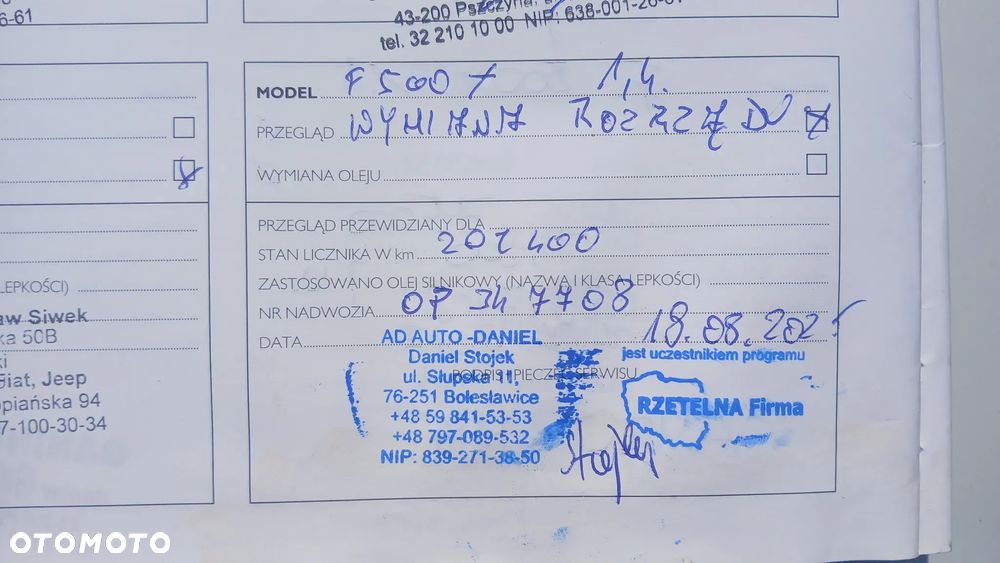 6-61
43-200 Pszczyna,
tel. 32 210 10 00 NIP: 638-001-26-61
MODEL F 500 X 1,4.
PRZEGLĄD WYMIANA ROZRZĄDU
WYMIANA OLEJU
PRZEGLĄD PRZEWIDZIANY DLA
STAN LICZNIKA W km 201 400
LEPKOŚCI)
ZASTOSOWANO OLEJ SILNIKOWY (NAZWA I KLASA LEPKOŚCI)
NR NADWOZIA OP 347708
DATA 18.08.2025
aw Siwek
ka 50B
ki
Fiat, Jeep
opiańska 94
7-100-30-34
AD AUTO -DANIEL
Daniel Stojek
PODPIS I PIECZĘĆ SERWISU
ul. Słupska 11,
76-251 Bolesławice
+48 59 841-53-53
+48 797-089-532
NIP: 839-271-38-50
jest uczestnikiem programu
RZETELNA Firma
Stojek
OTOMOTO